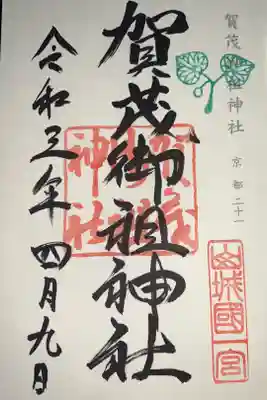 賀茂御祖神社
京都二十一
山城國一宮
賀茂御祖神社
令和三年四月九日